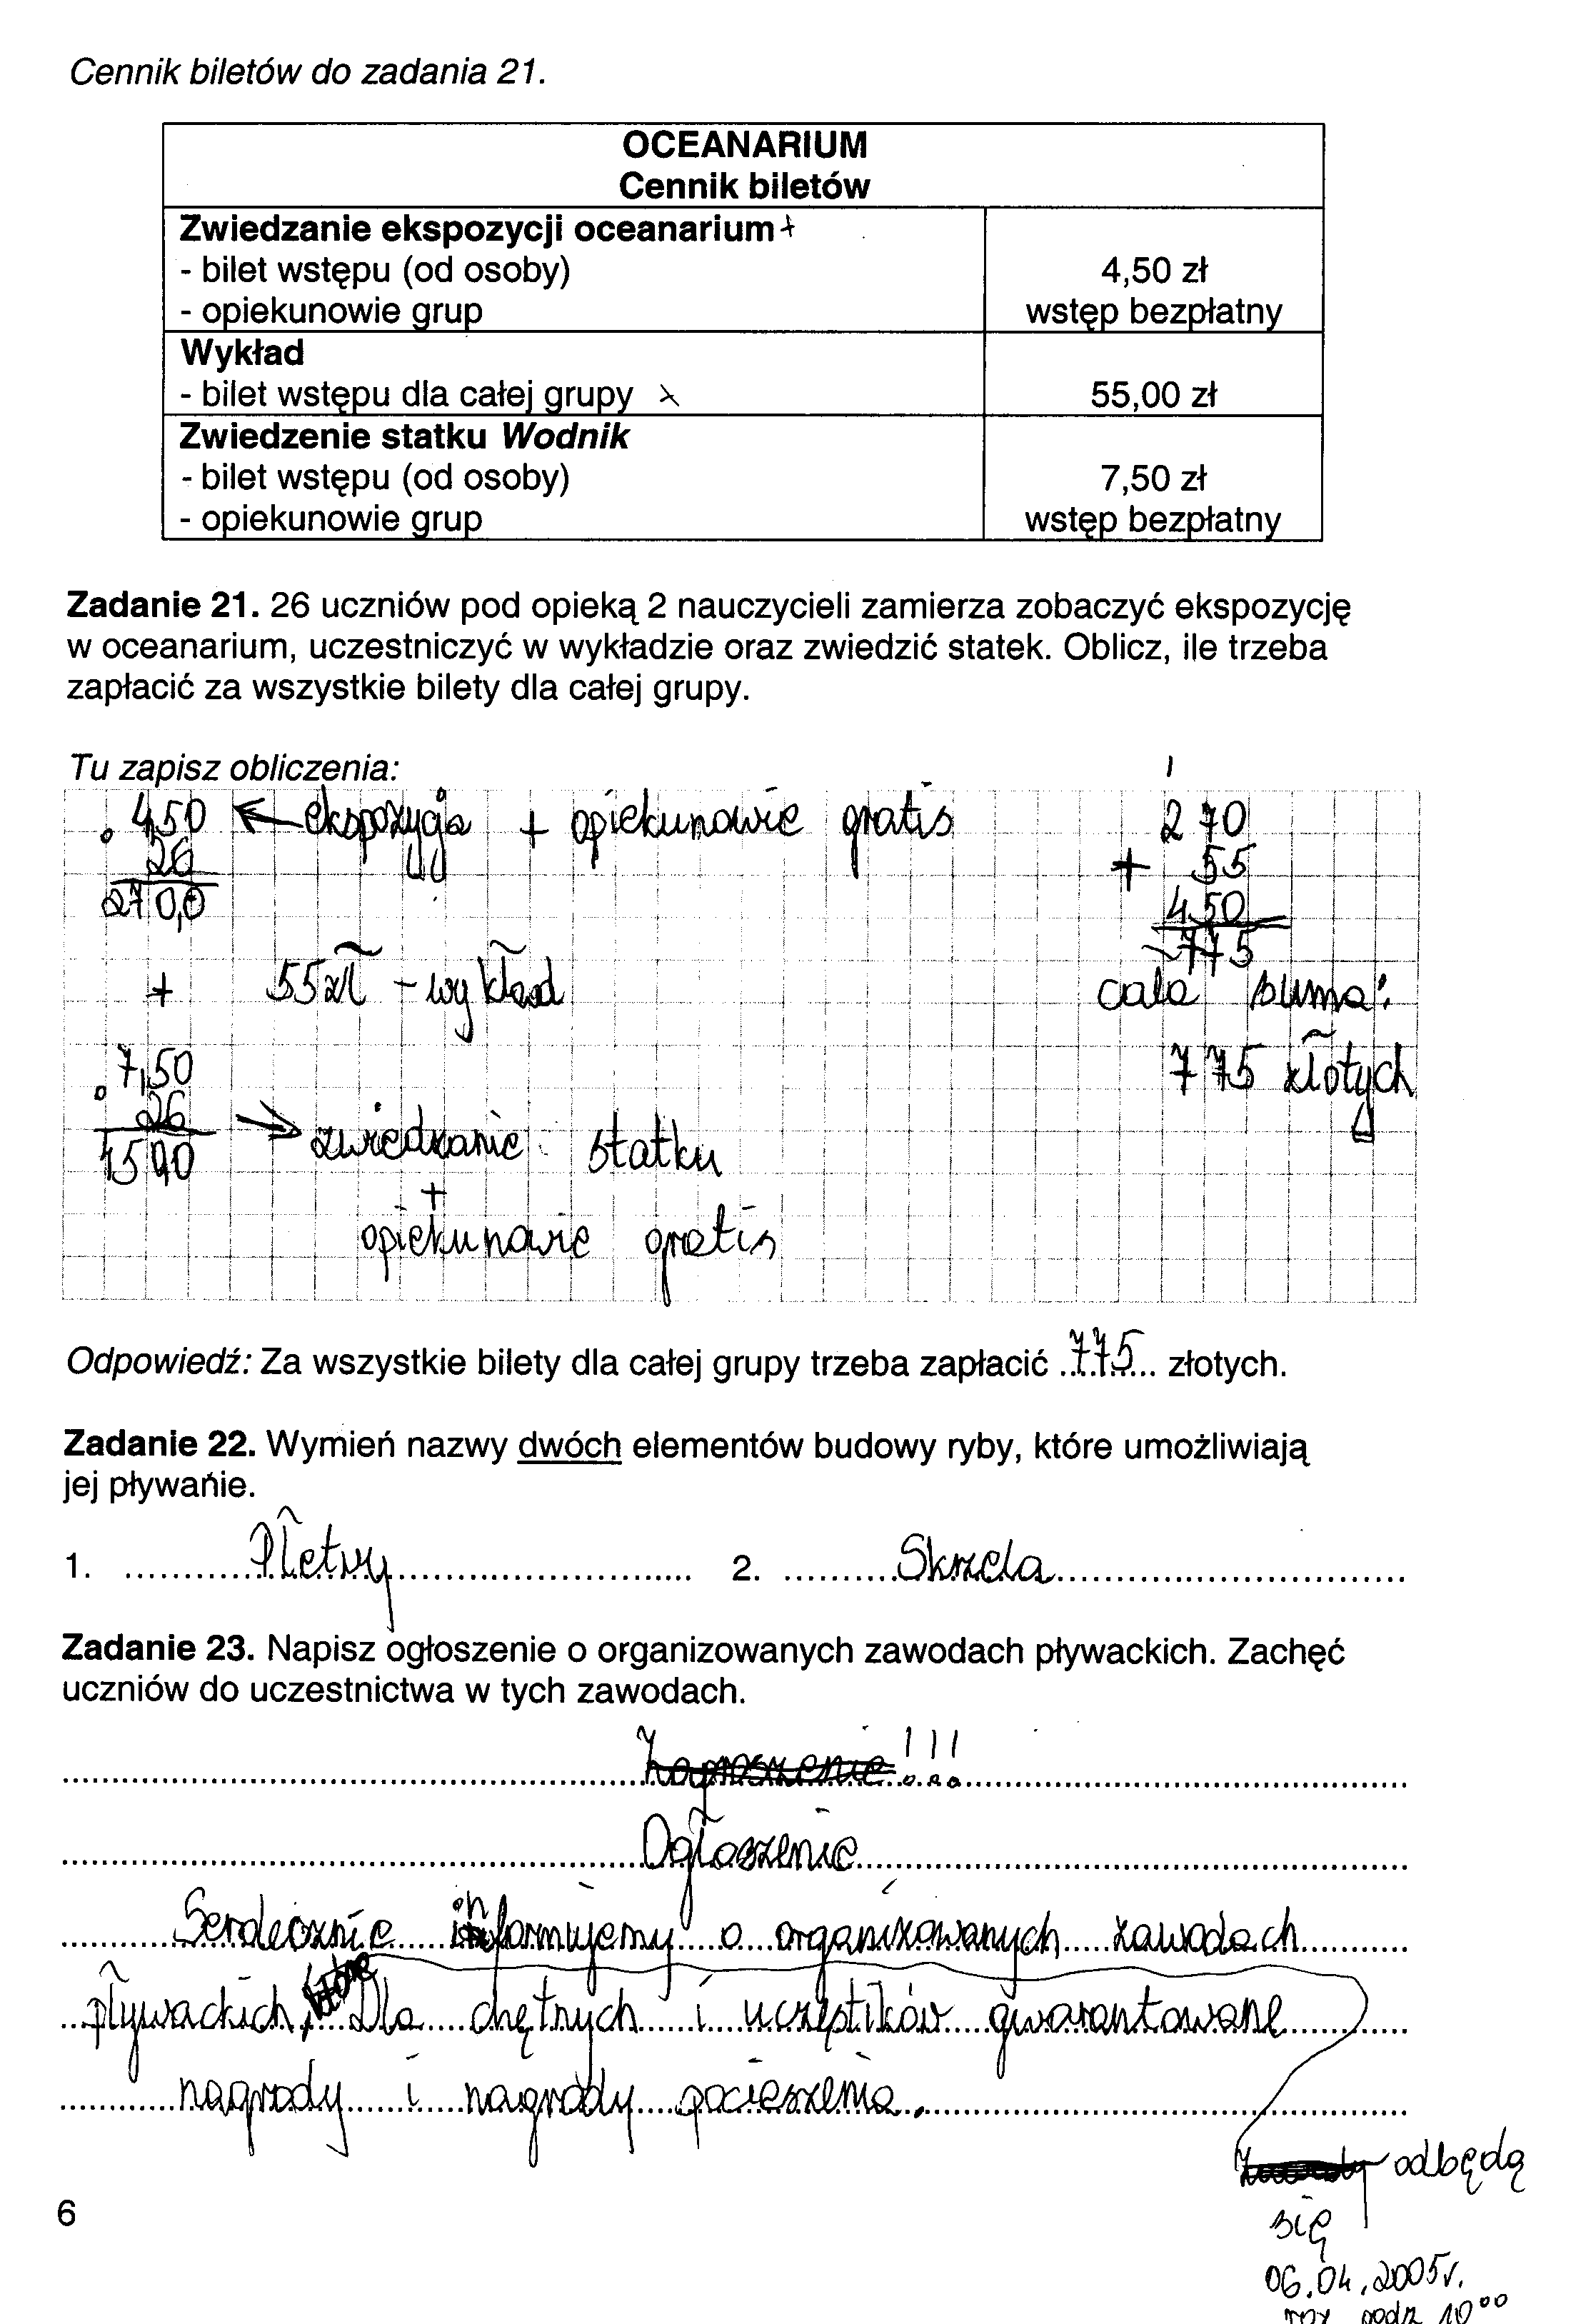 Cennik biletów do zadania 21.
OCEANARIUM
Cennik biletów
Zwiedzanie ekspozycji oceanarium
- bilet wstępu (od osoby) 4,50 zł
- opiekunowie grup wstęp bezpłatny
Wykład
- bilet wstępu dla całej grupy 55,00 zł
Zwiedzenie statku Wodnik
- bilet wstępu (od osoby) 7,50 zł
- opiekunowie grup wstęp bezpłatny
Zadanie 21. 26 uczniów pod opieką 2 nauczycieli zamierza zobaczyć ekspozycję
w oceanarium, uczestniczyć w wykładzie oraz zwiedzić statek. Oblicz, ile trzeba
zapłacić za wszystkie bilety dla całej grupy.
Tu zapisz obliczenia:
4,50 ← ekspozycja + opiekunowie gratis
26
270,0
+ 55 zł - wykład
7,50
26 → zwiedzanie statku
4500
+
opiekunowie gratis
1
270
+ 55
450
775
cała suma:
775 złotych
Odpowiedź: Za wszystkie bilety dla całej grupy trzeba zapłacić ..775... złotych.
Zadanie 22. Wymień nazwy dwóch elementów budowy ryby, które umożliwiają
jej pływanie.
1. Płetwy 2. Skrzela
Zadanie 23. Napisz ogłoszenie o organizowanych zawodach pływackich. Zachęć
uczniów do uczestnictwa w tych zawodach.
Zaproszenie!!!
Ogłoszenie
Serdecznie informujemy o organizowanych zawodach
pływackich, które Dla chętnych i uczęstików gwarantowane
nagrody i nagrody pocieszenia.
odbędą
się
06.04.2005r.
godz 10⁰⁰
6